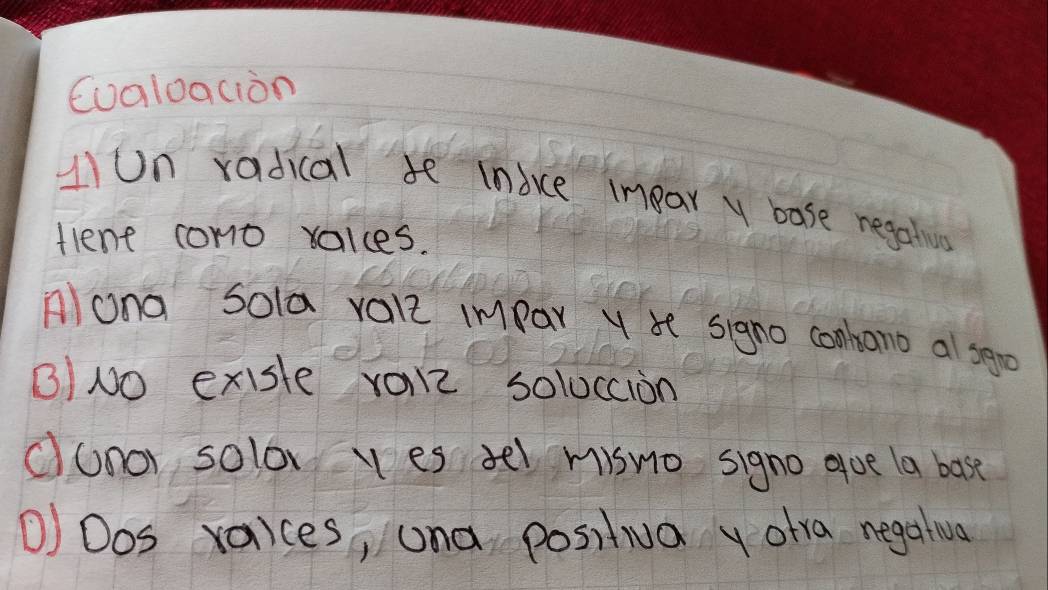 Evaluación
1) Un radical de indice impar y base negativa
tiene como raices.
A) una sola raiz impar y de signo contrario al signo
B) No existe raiz solucción
C) una sola y es del mismo signo que la base
D) Dos raices, una positiva y otra negativa